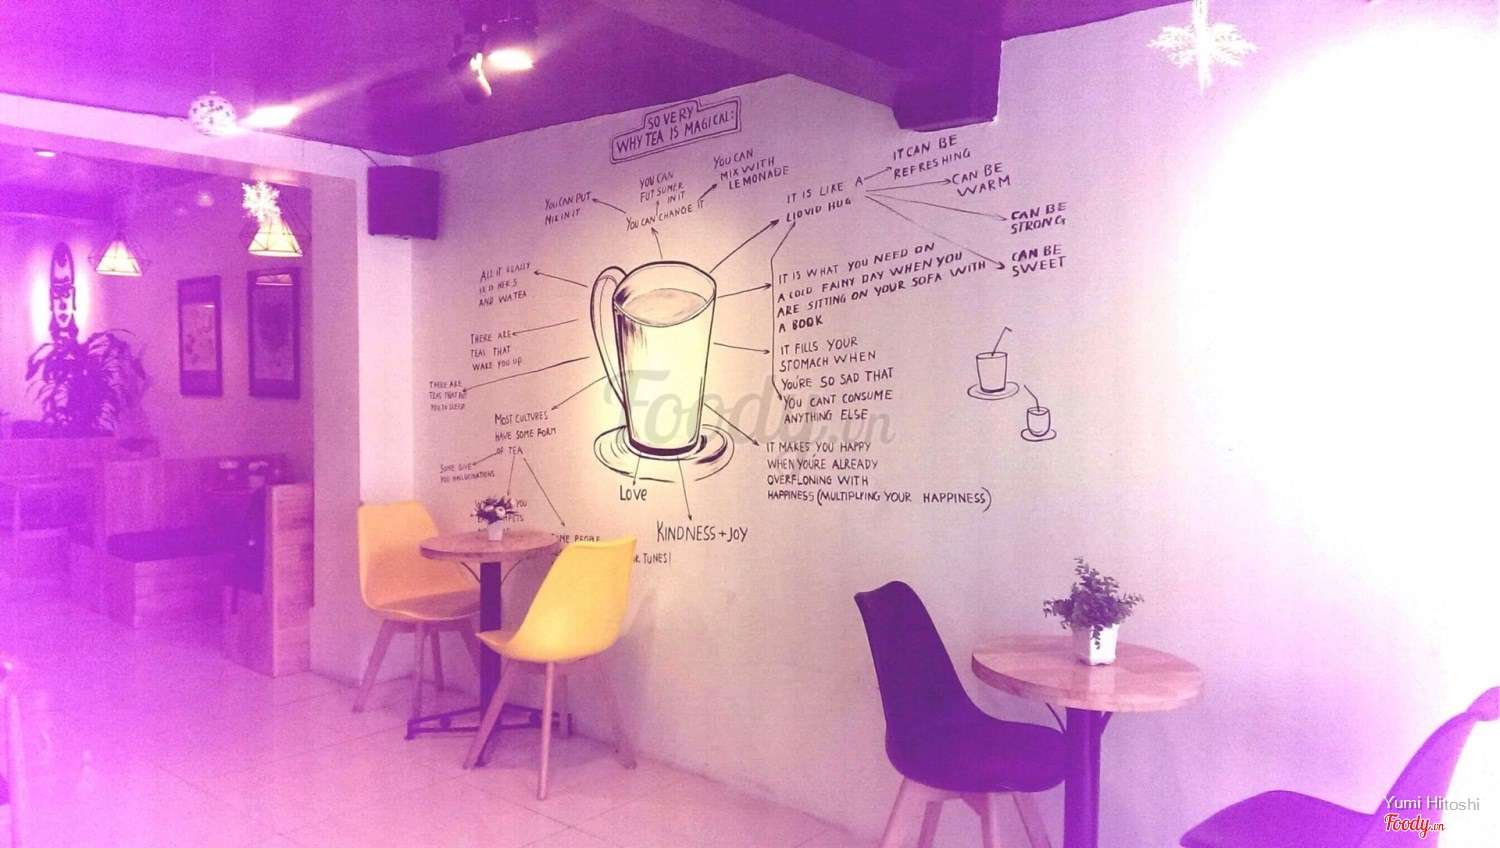 SO VERY
WHY TEA IS MAGICAL:
YOU CAN PUT
MILK IN IT
YOU CAN
PUT SUMER
IN IT
YOU CAN
MIX WITH
LEMONADE
YOU CAN CHANGE IT
IT IS LIKE A
LIQVID HUG
IT CAN BE
REFRESHING
CAN BE
WARM
CAN BE
STRONG
CAN BE
SWEET
ALL IT REALLY
IS IS HERBS
AND WATEA
IT IS WHAT YOU NEED ON
A COLD FAINY DAY WHEN YOU
ARE SITTING ON YOUR SOFA WITH
A BOOK
THERE ARE
TEAS THAT
WAKE YOU UP
IT FILLS YOUR
STOMACH WHEN
YOU'RE SO SAD THAT
YOU CANT CONSUME
ANYTHING ELSE
THERE ARE
TEAS THAT PUT
YOU TO SLEEP
MOST CULTURES
HAVE SOME FORM
OF TEA
SOME GIVE
YOU HALLUCINATIONS
IT MAKES YOU HAPPY
WHEN YOU'RE ALREADY
OVERFLONING WITH
HAPPINESS (MULTIPLYING YOUR HAPPINESS)
LOVE
KINDNESS + JOY
YOU
SOME PEOPLE
TUNES!
Foody.vn
Yumi Hitoshi
Foody.vn